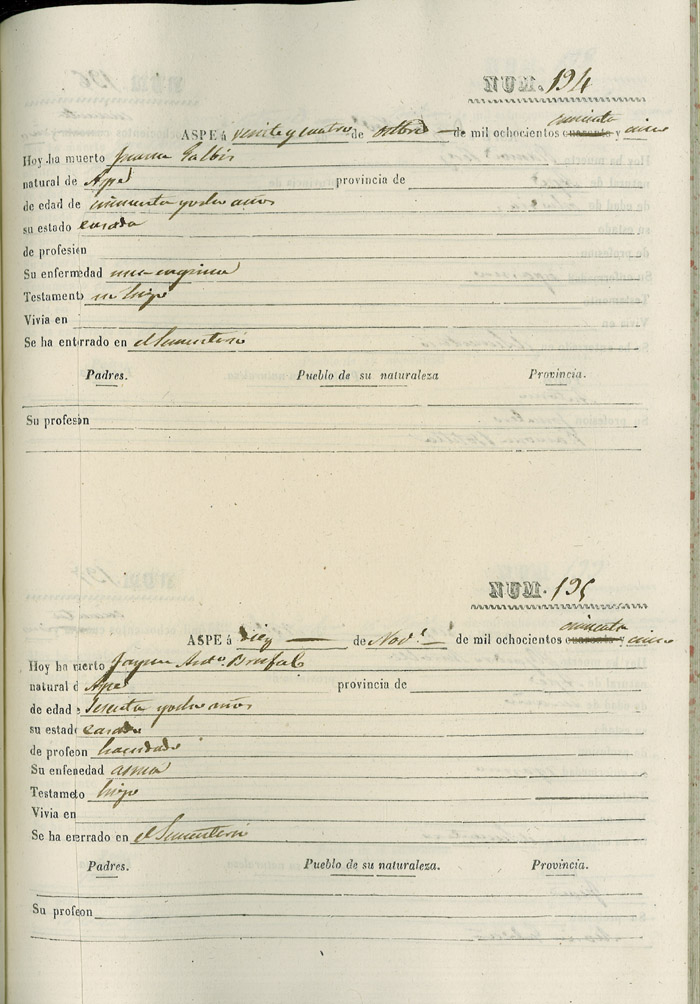 NUM. 194
ASPE á veinte y cuatro de octbre de mil ochocientos cuarenta cincuenta y cinco
Hoy ha muerto Juana Galbis
natural de Aspe provincia de
de edad de cincuenta y ocho años
su estado casada
de profesion
Su enfermedad una
Testamento no hizo
Vivia en
Se ha enterrado en el Sementerio
Padres. Pueblo de su naturaleza Provincia.
Su profesion
NUM. 195
ASPE á diez de Nove. de mil ochocientos cuarenta cincuenta y cinco
Hoy ha muerto Jayme Anto. Brufal
natural d Aspe provincia de
de edad e Sesenta y ocho años
su estado casado
de profeon hacendado
Su enfenedad asma
Testameto hizo
Vivia en
Se ha enrrado en el Sementerio
Padres. Pueblo de su naturaleza. Provincia.
Su profeon